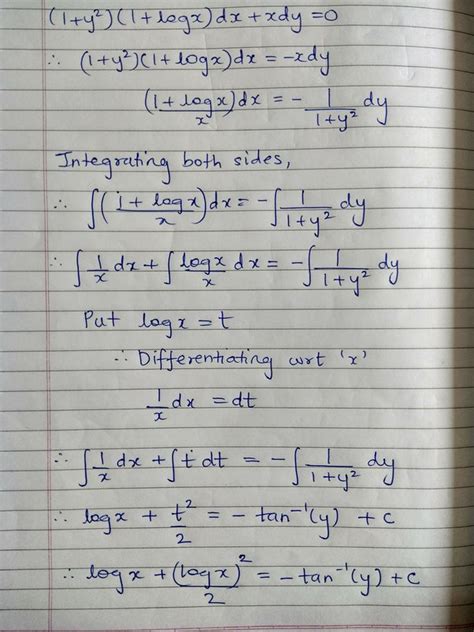 (1+y²)(1+logx)dx+xdy=0
∴ (1+y²)(1+logx)dx=-xdy
(1+logx)/x dx = - 1/(1+y²) dy
Integrating both sides,
∴ ∫((1+logx)/x)dx=-∫1/(1+y²) dy
∴ ∫1/x dx+∫logx/x dx=-∫1/(1+y²) dy
Put logx=t
∴ Differentiating wrt 'x'
1/x dx = dt
∴ ∫1/x dx+∫t dt = -∫1/(1+y²) dy
∴ logx + t²/2 = - tan⁻¹(y) + c
∴ logx+(logx)²/2 = -tan⁻¹(y)+c